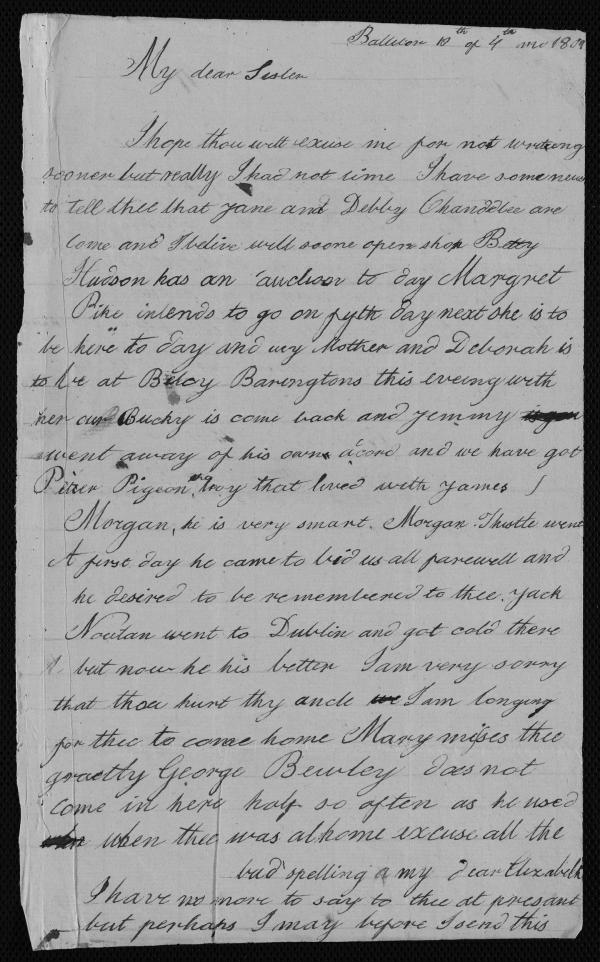 Ballitore 10th of 4th mo 1809
My dear Sister
I hope thou will excuse me for not writeing
sooner but really I had not time I have some news
to tell thee that Jane and Debby Chandelee are
come and I belive will soone open shop Betsy
Hudson has an auction to day Margret
Pike intends to go on fyth day next she is to
be here to day and my Mother and Deborah is
to be at Betcy Baringtons this eveing with
her our Bucky is come back and Jemmy
went away of his own acord and we have got
Peter Pigeon the boy that lived with James
Morgan, he is very smart. Morgan Thistle went
A first day he came to bid us all farewell and
he desired to be remembered to thee. Jack
Nowlan went to Dublin and got cold there
but now he his better I am very sorry
that thou hurt thy ancle I am longing
for thee to come home Mary mises thee
graetly George Bewley does not
come in here half so often as he used
when thee was at home excuse all the
bad spelling a my dear Elizabeth
I have no more to say to thee at presant
but perhaps I may before I send this